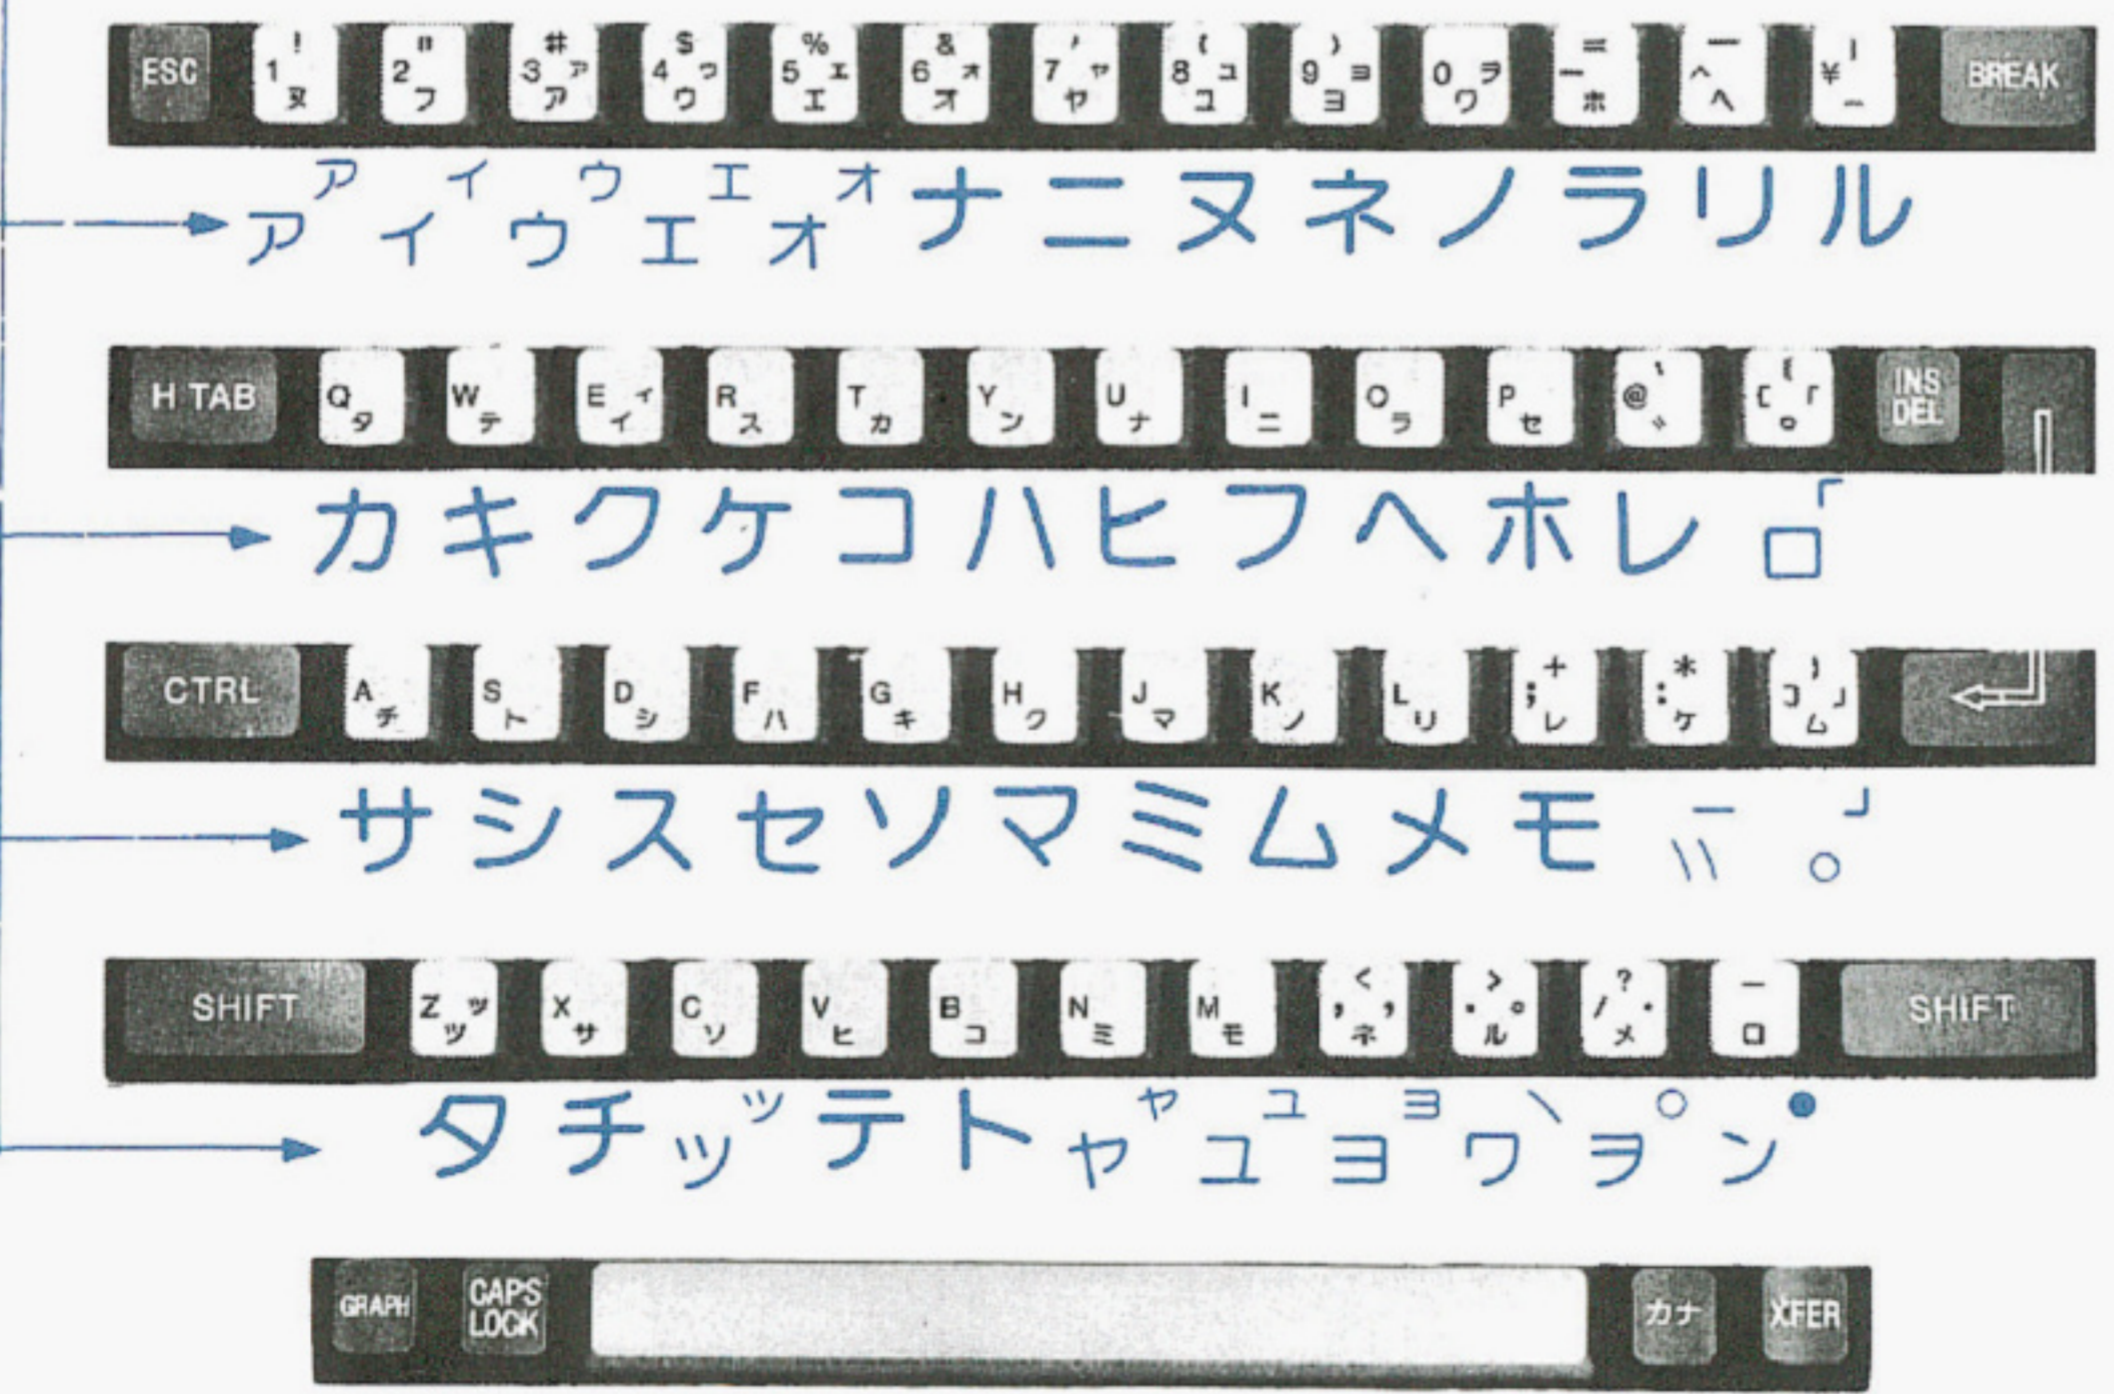 ESC ! 1 ヌ " 2 フ # 3 ァ ア $ 4 ゥ ウ % 5 ェ エ & 6 ォ オ ' 7 ャ ヤ ( 8 ュ ユ ) 9 ョ ヨ 0 ヲ ワ = ー ホ ー ^ ヘ | ¥ ー BREAK
ァ ィ ゥ ェ ォ
ア イ ウ エ オ ナ ニ ヌ ネ ノ ラ リ ル
H TAB Q タ W テ E ィ イ R ス T カ Y ン U ナ I ニ O ラ P セ @ ゛ { [ 「 ゜ INS DEL
カ キ ク ケ コ ハ ヒ フ ヘ ホ レ ロ 「
CTRL A チ S ト D シ F ハ G キ H ク J マ K ノ L リ + ; レ * : ケ } ] 」 ム
サ シ ス セ ソ マ ミ ム メ モ ー ゛ 」 ゜
SHIFT Z ッ ツ X サ C ソ V ヒ B コ N ミ M モ < , 、 ネ > . 。 ル ? / ・ メ _ ロ SHIFT
ッ ャ ュ ョ 、 。 ・
タ チ ツ テ ト ヤ ユ ヨ ワ ヲ ン
GRAPH CAPS LOCK カナ XFER